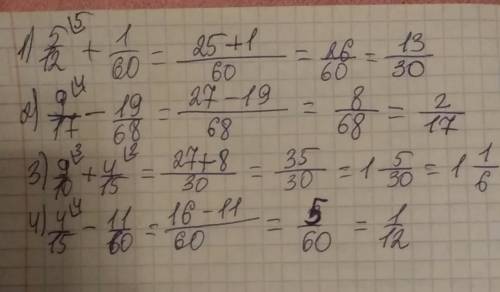 1) 5/12 \5 + 1/60 = 25+1/60 = 26/60 = 13/30
2) 9/17 \4 - 19/68 = 27-19/68 = 8/68 = 2/17
3) 9/10 \3 + 4/15 \2 = 27+8/30 = 35/30 = 1 5/30 = 1 1/6
4) 4/15 \4 - 11/60 = 16-11/60 = 5/60 = 1/12